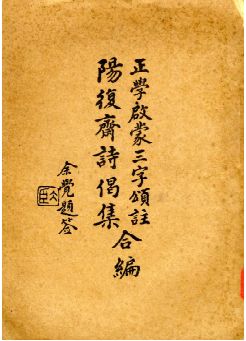 正學啟蒙三字頌註
陽復齋詩偈集合編
余覺題簽